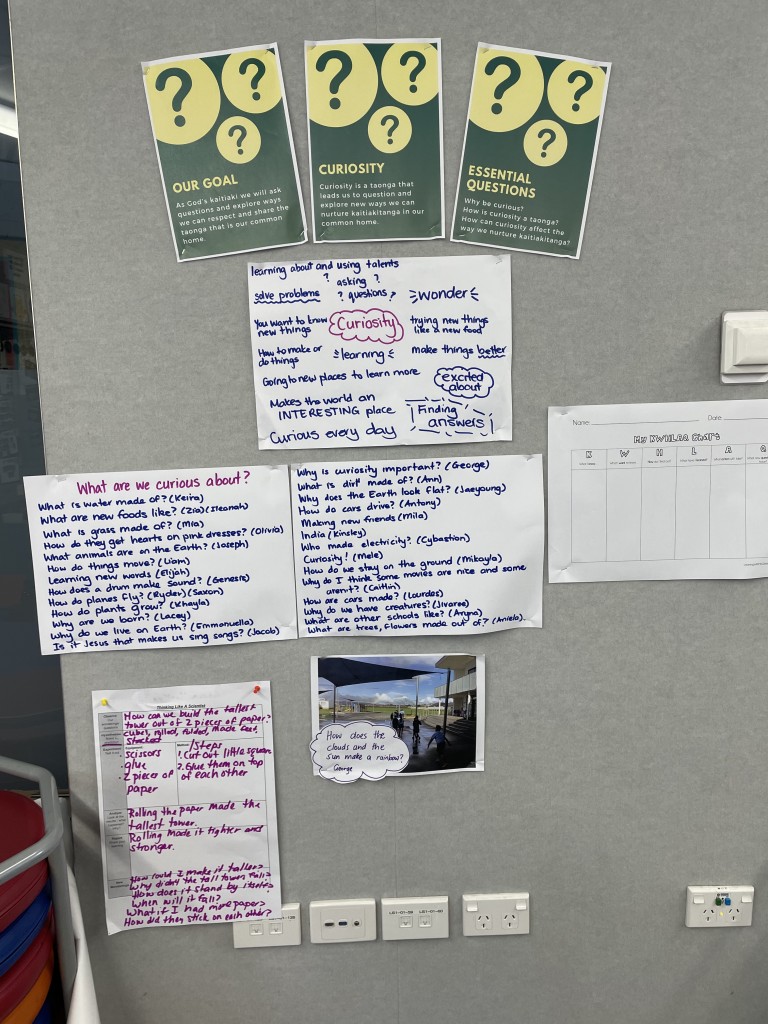 OUR GOAL
As God's kaitiaki we will ask
questions and explore ways
we can respect and share the
taonga that is our common
home.
CURIOSITY
Curiosity is a taonga that
leads us to question and
explore new ways we can
nurture kaitiakitanga in our
common home.
ESSENTIAL
QUESTIONS
Why be curious?
How is curiosity a taonga?
How can curiosity affect the
way we nurture kaitiakitanga?
learning about and using talents
? asking ?
solve problems ? questions ? wonder
You want to know
new things
Curiosity
trying new things
like a new food
How to make or
do things
learning
make things better
Going to new places to learn more
excited
about
Makes the world an
INTERESTING place
Finding
answers
Curious every day
What are we curious about?
What is water made of? (Keira)
What are new foods like? (Zia)
What is grass made of? (Mia)
How do they get hearts on pink dresses? (Olivia)
What animals are on the Earth? (Joseph)
How do things move? (Liam)
Learning new words (Elijah)
How does a drum make sound? (Genesis)
How do planes fly? (Ryder) (Saxon)
How do plants grow? (Khayla)
Why are we born? (Lacey)
Why do we live on Earth? (Emmanuella)
Is it Jesus that makes us sing songs? (Jacob)
Why is curiosity important? (George)
What is dirt made of? (Ann)
Why does the Earth look flat? (Jaeyoung)
How do cars drive? (Antony)
Making new friends (Mila)
India (Kinsley)
Who made electricity? (Cybastion)
Curiosity! (Mele)
How do we stay on the ground (Mikayla)
Why do I think some movies are nice and some
aren't? (Caitlin)
How are cars made? (Lourdes)
Why do we have creatures?
What are other schools like?
What are trees, flowers made out of?
Name: Date:
My KWHLAQ Chart
K W H L A Q
Thinking Like A Scientist
How can we build the tallest
tower out of 2 pieces of paper?
cubes, rolled, folded, made feet,
stacked
· scissors
· glue
· 2 pieces of
paper
/Steps
1. Cut out little squares
2. Glue them on top
of each other
Rolling the paper made the
tallest tower.
Rolling made it tighter and
stronger.
How could I make it taller?
Why didn't the tall tower fall?
How does it stand by itself?
When will it fall?
What if I had more paper?
How did they stick on each other?
How does the
clouds and the
sun make a rainbow?
George